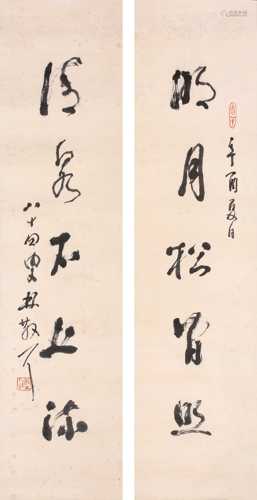 明月松間照
辛酉夏日
清泉石上流
八十四叟林散耳